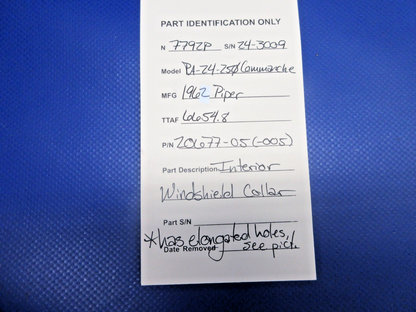 PART IDENTIFICATION ONLY
N 7792P S/N 24-3009
Model PA-24-250 Commanche
MFG 1962 Piper
TTAF 6654.8
P/N 20677-05 (-005)
Part Description Interior
Windshield Collar
Part S/N
*has elongated holes,
Date Removed see pic!